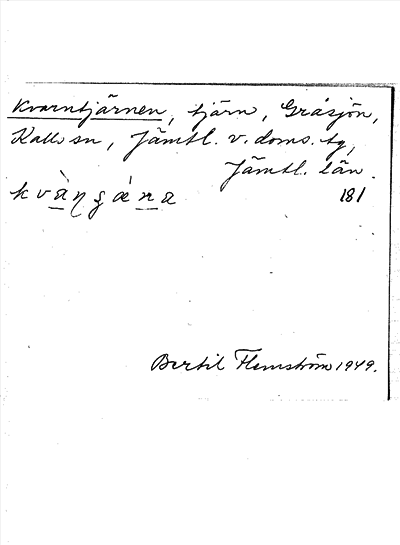 Kvarntjärnen, tjärn, Gråsjön,
Kall sn, Jämtl. v. doms. tg,
Jämtl. län.
181
Bertil Flemström 1949.